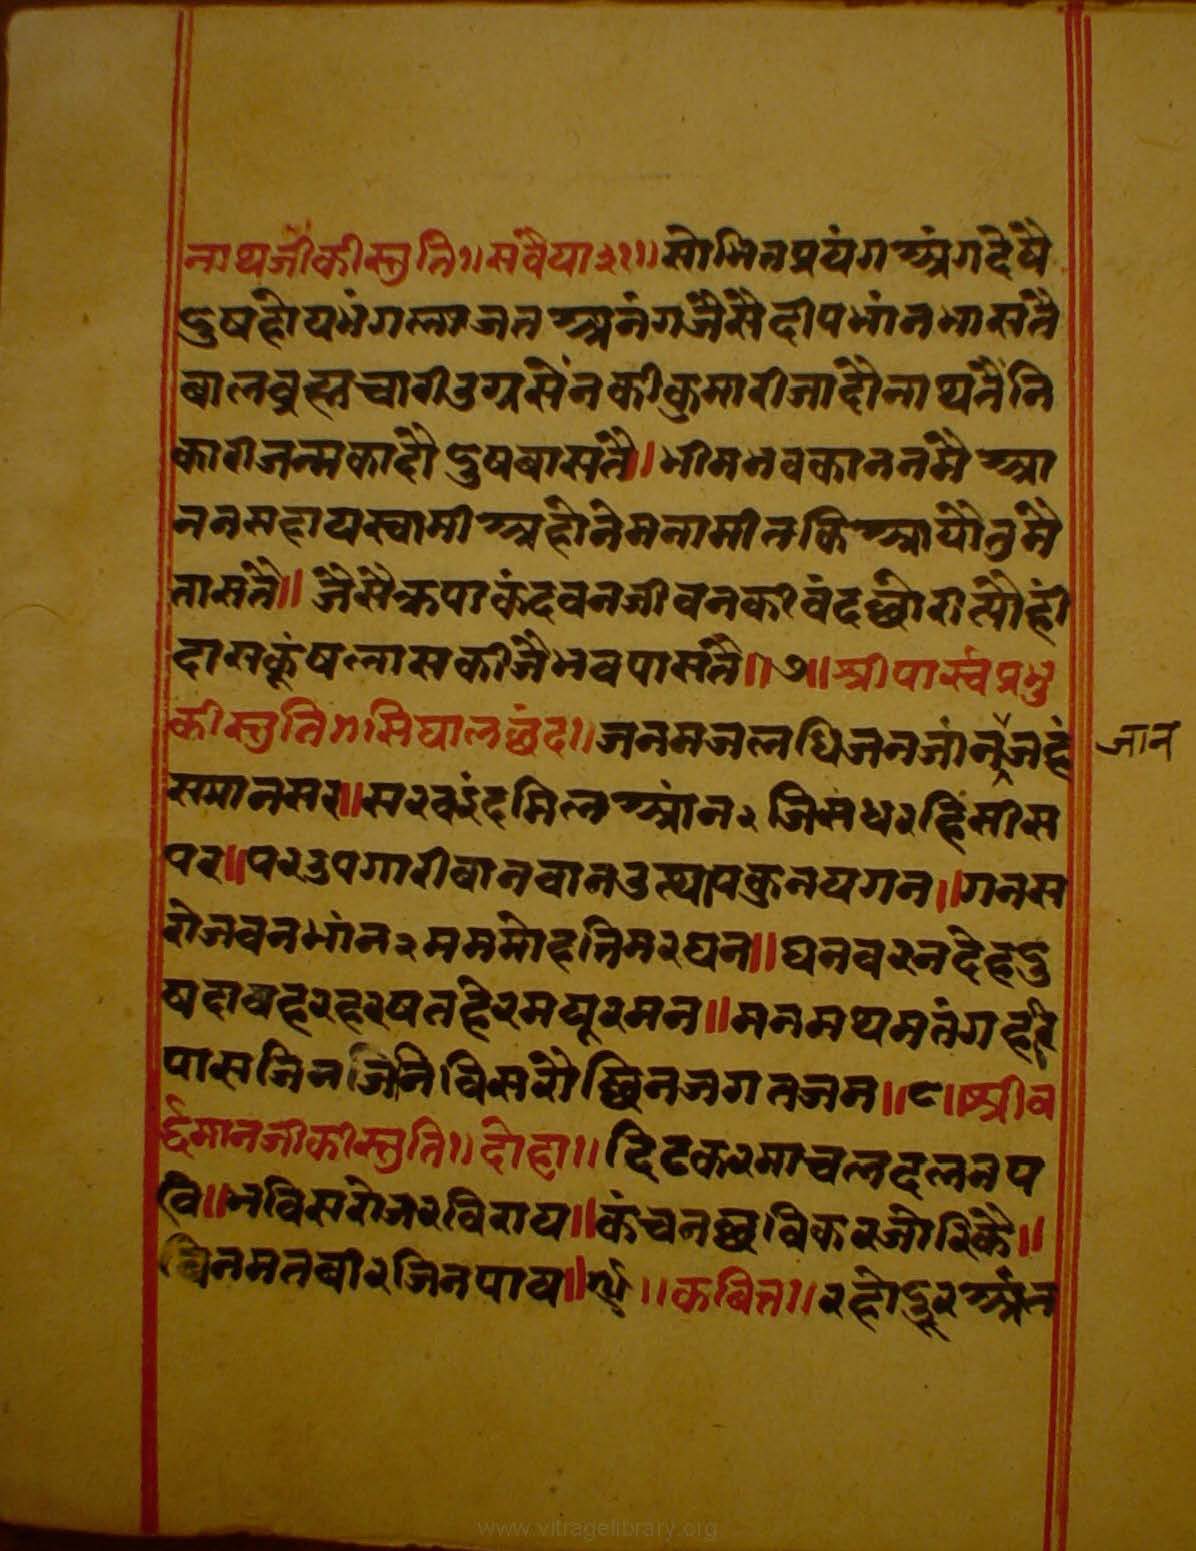 नाथजीकीस्तुति॥सवैया३१॥सोभितप्रयंगअंगदेषै
दुषहोयभंगलाजतअनंगजैसैदीपभांनभासतै
बालब्रह्मचारीउग्रसेंनकीकुमारीजादौनाथतैंनि
कारीजन्मकादौदुषबासतै॥भीमभवकाननमैआ
ननसहायस्वामीअहोनेमनामीतकिआयौतुमै
तासतै॥जैसैक्रपाकंदवनजीवनकीवंदछोरीत्यौहीं
दासकूंषलासकीजैभवपासतै॥७॥श्रीपार्स्वप्रभु
कीस्तुति॥सिंघालछंद॥जनमजलधिजनजांनजहं जान
समानसर॥सरवइंदमिलआंन२जिसधरहिंसीस
पर॥परउपगारीवानवानउत्थपकुनयगन॥गनस
रोजवनभांन२मममोहतिमरघन॥घनवरनदेहदु
षदाघहरहरषतहेरमयूरमन॥मनमथमतंगहरि
पासजिनजिनिविसरौछिनजगतजन॥८॥श्रीव
र्द्धमानजीकीस्तुति॥दोहा॥दिढकरमाचलदलनप
वि॥भविसरोजरविराय॥कंचनछविकरजोरिकै॥
विनमतवीरजिनपाय॥९॥कवित्त॥रहोदूरअंत
www.vitragelibrary.org